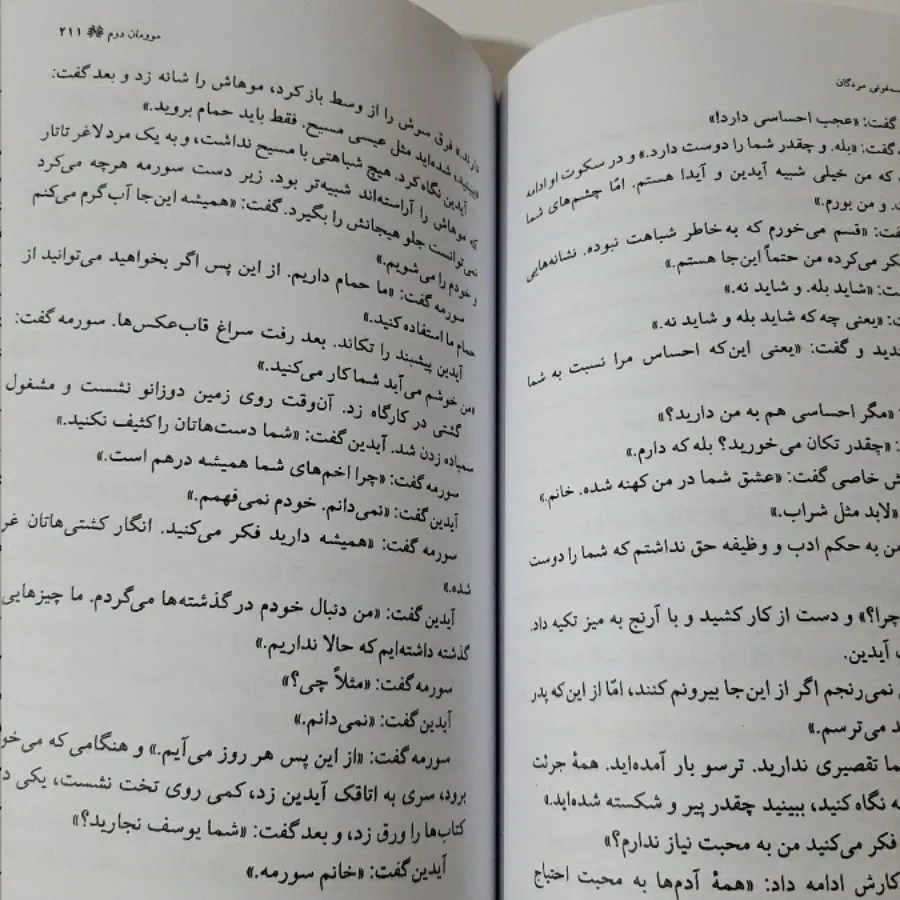 سمفونی مردگان
گفت: «عجب احساسی دارد!»
گفت: «بله. و چقدر شما را دوست دارد.» و در سکوت او ادامه
که من خیلی شبیه آیدین و آیدا هستم. امّا چشم‌های شما
و من بورم.»
گفت: «قسم می‌خورم که به‌خاطر شباهت نبوده. نشانه‌هایی
فکر می‌کرده من حتماً این‌جا هستم.»
«شاید بله. و شاید نه.»
«یعنی چه که شاید بله و شاید نه.»
و گفت: «یعنی این‌که احساس مرا نسبت به شما
«مگر احساسی هم به من دارید؟»
«چقدر تکان می‌خورید؟ بله که دارم.»
خاصی گفت: «عشق شما در من کهنه شده. خانم.»
«لابد مثل شراب.»
من به حکم ادب و وظیفه حق نداشتم که شما را دوست
چرا؟» و دست از کار کشید و با آرنج به میز تکیه داد.
آیدین.
نمی‌رنجم اگر از این‌جا بیرونم کنند، امّا از این‌که پدر
می‌ترسم.»
تقصیری ندارید. ترسو بار آمده‌اید. همهٔ جرئت
نگاه کنید، ببینید چقدر پیر و شکسته شده‌اید.»
فکر می‌کنید من به محبت نیاز ندارم؟»
کارش ادامه داد: «همهٔ آدم‌ها به محبت احتیاج
موومان دوم ۲۱۱
دارند.» فرق سرش را از وسط باز کرد، موهاش را شانه زد و بعد گفت:
«ببینید، شده‌اید مثل عیسی مسیح. فقط باید حمام بروید.»
آیدین نگاه کرد. هیچ شباهتی با مسیح نداشت، و به یک مرد لاغر تاتار
که موهاش را آراسته‌اند شبیه‌تر بود. زیر دست سورمه هرچه می‌کرد
نمی‌توانست جلو هیجانش را بگیرد. گفت: «همیشه این‌جا آب گرم می‌کنم
و خودم را می‌شویم.»
سورمه گفت: «ما حمام داریم. از این پس اگر بخواهید می‌توانید از
حمام ما استفاده کنید.»
آیدین پیشبند را تکاند. بعد رفت سراغ قاب‌عکس‌ها. سورمه گفت:
«من خوشم می‌آید شما کار می‌کنید.»
گشتی در کارگاه زد. آن‌وقت روی زمین دوزانو نشست و مشغول
سمباده زدن شد. آیدین گفت: «شما دست‌هاتان را کثیف نکنید.»
سورمه گفت: «چرا اخم‌های شما همیشه درهم است.»
آیدین گفت: «نمی‌دانم. خودم نمی‌فهمم.»
سورمه گفت: «همیشه دارید فکر می‌کنید. انگار کشتی‌هاتان غر
شده.»
آیدین گفت: «من دنبال خودم در گذشته‌ها می‌گردم. ما چیزهایی
گذشته داشته‌ایم که حالا نداریم.»
سورمه گفت: «مثلاً چی؟»
آیدین گفت: «نمی‌دانم.»
سورمه گفت: «از این پس هر روز می‌آیم.» و هنگامی که می‌خو
برود، سری به اتاقک آیدین زد، کمی روی تخت نشست، یکی د
کتاب‌ها را ورق زد، و بعد گفت: «شما یوسف نجارید؟»
آیدین گفت: «خانم سورمه.»